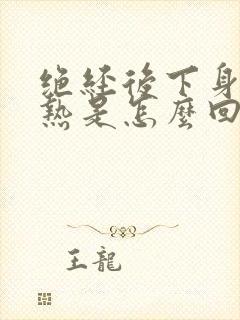 绝经後下身
熱是怎麼回
王龍